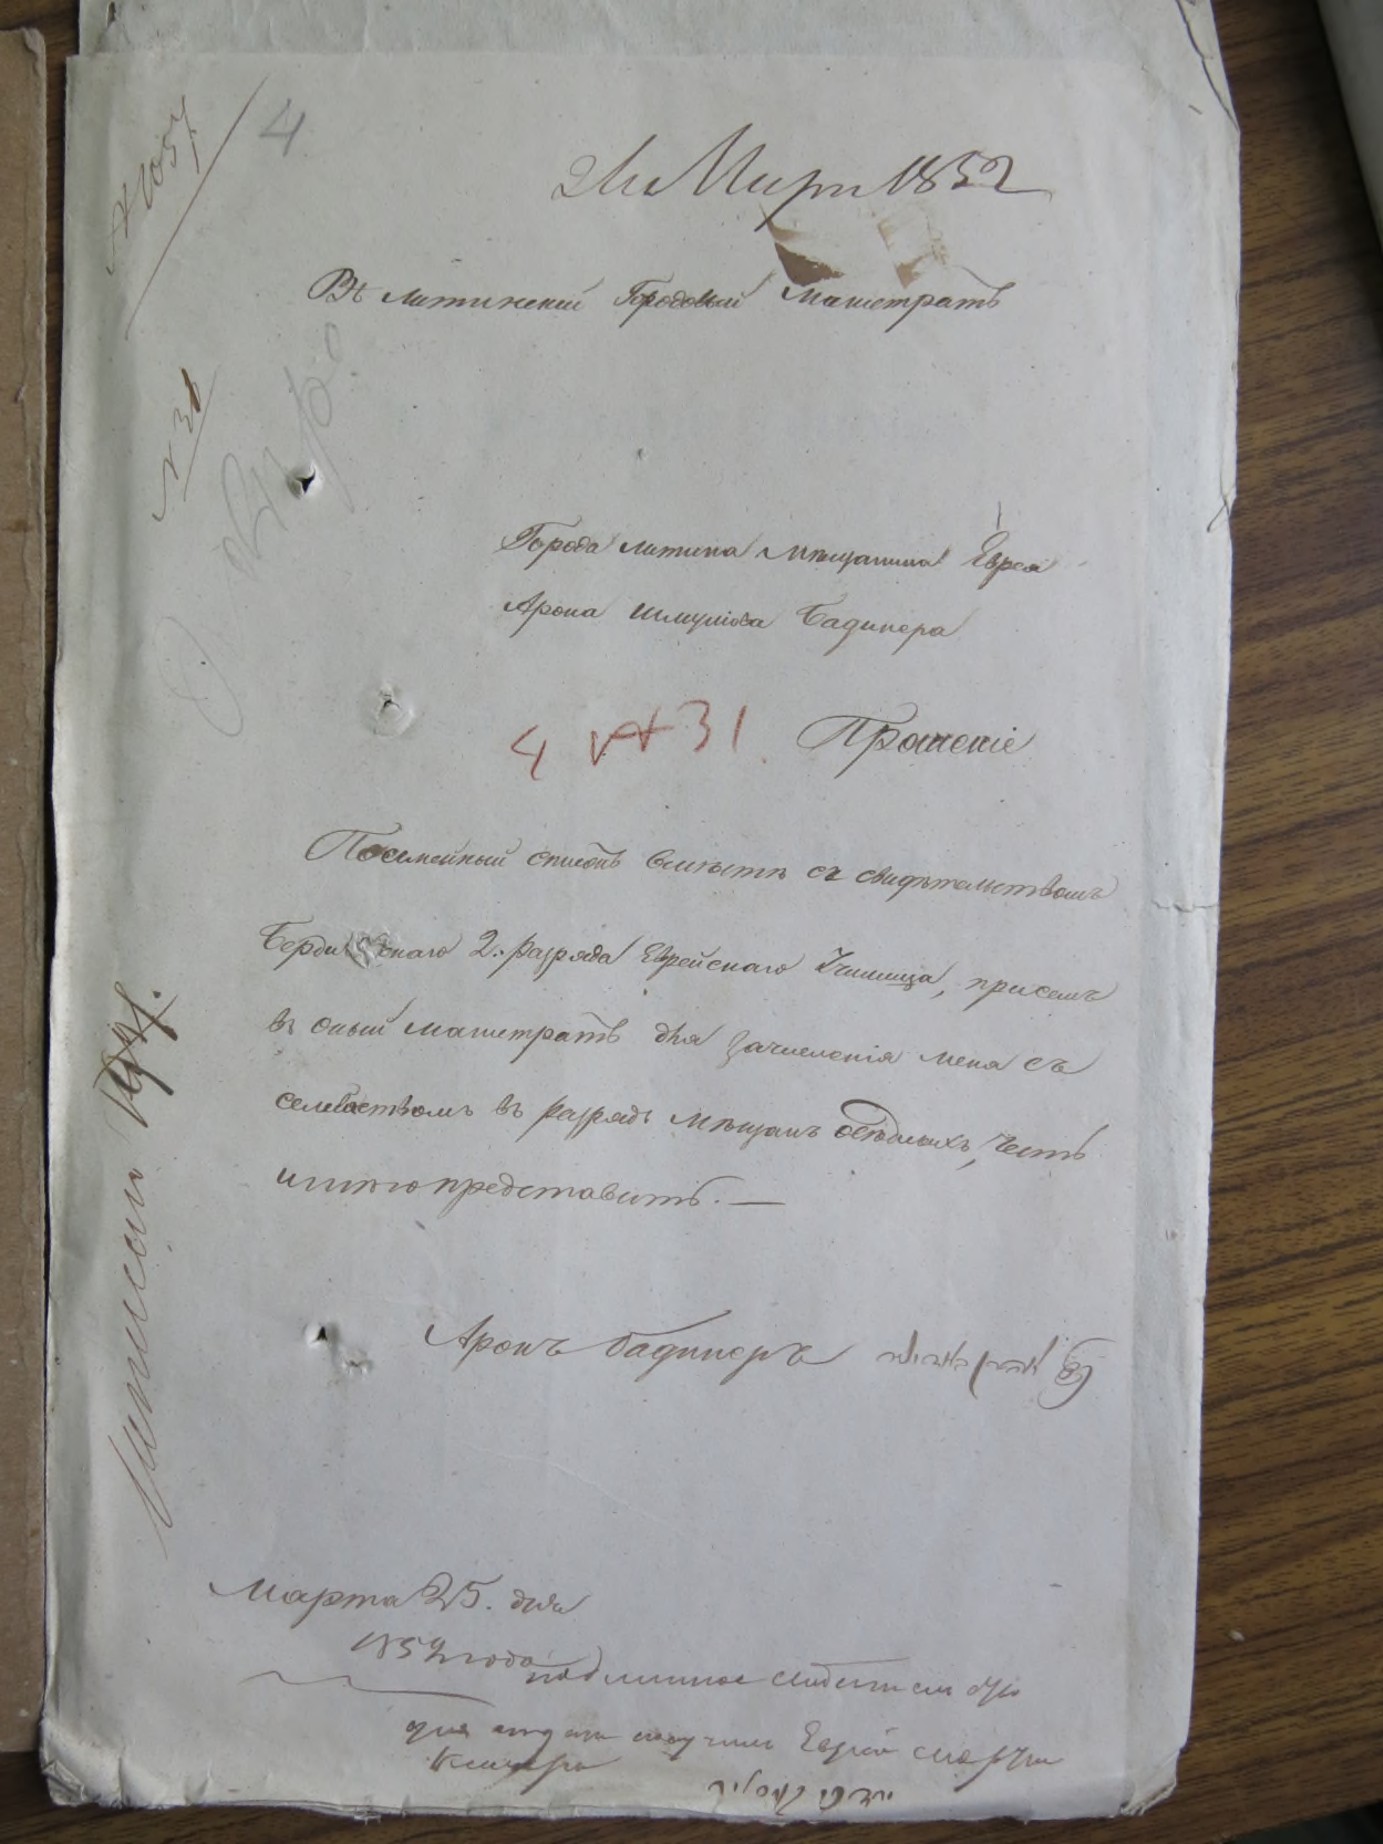 № 1054
4
Марта 1852
Въ Литинскій Городовый Магистратъ
№ 31
Города Литина Мѣщанина Еврея
Арона Шмулiова Бадинера
4 № 31. Прошеніе
Посемейный списокъ вмѣстѣ съ свидѣтельствомъ
Бердичевскаго 2. разряда Еврейскаго Училища, при семъ
въ оный Магистратъ для зачисленія меня съ
семействомъ въ разрядъ мѣщанъ осѣдлыхъ, честь
имѣю представить. —
Аронъ Бадинеръ
Марта 25. дня
1852 года
подлинное
получилъ Еврей